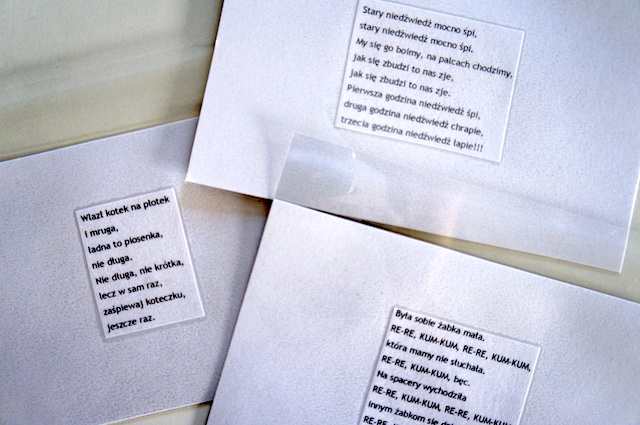 Stary niedźwiedź mocno śpi,
stary niedźwiedź mocno śpi.
My się go boimy, na palcach chodzimy,
jak się zbudzi to nas zje,
jak się zbudzi to nas zje.
Pierwsza godzina niedźwiedź śpi,
druga godzina niedźwiedź chrapie,
trzecia godzina niedźwiedź łapie!!!
Wlazł kotek na płotek
i mruga,
ładna to piosenka,
nie długa.
Nie długa, nie krótka,
lecz w sam raz,
zaśpiewaj koteczku,
jeszcze raz.
Była sobie żabka mała.
RE-RE, KUM-KUM, RE-RE, KUM-KUM,
która mamy nie słuchała.
RE-RE, KUM-KUM, bęc.
Na spacery wychodziła
RE-RE, KUM-KUM, RE-RE, KUM-KUM
innym żabkom się
RE-RE,